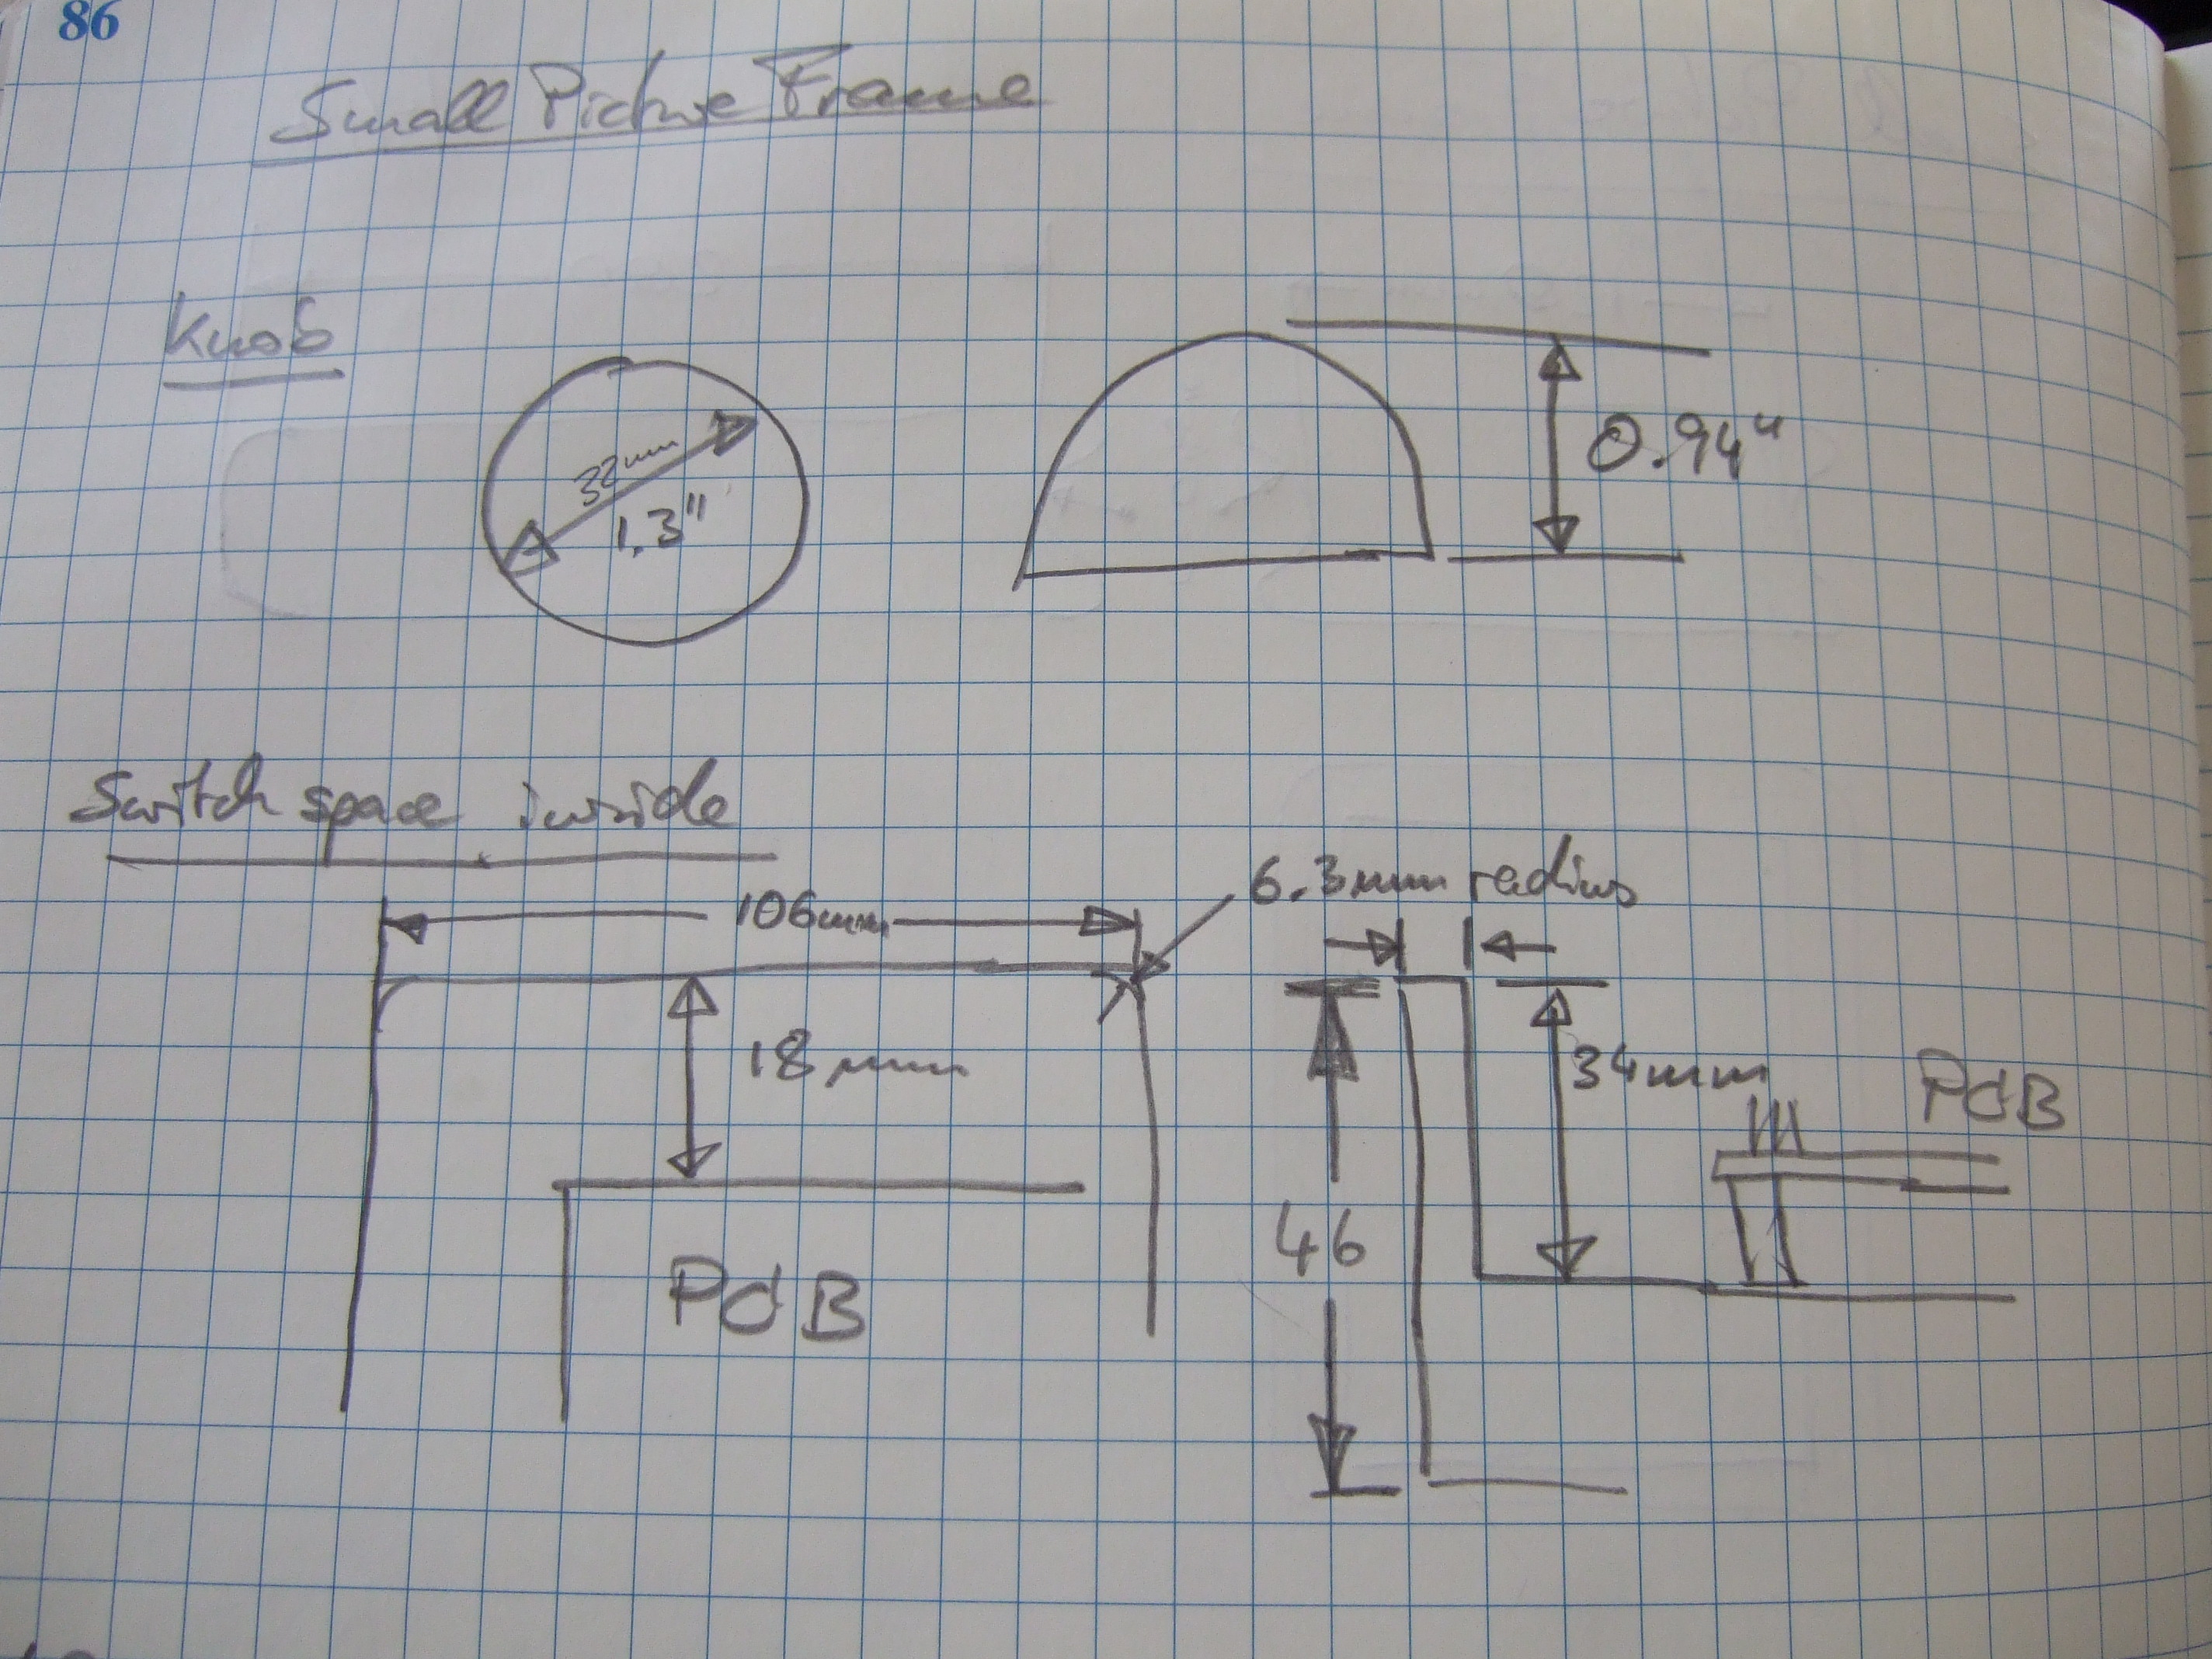 86
Small Picture Frame
Knob
32mm
1.3"
0.94"
Switch space inside
106mm
6.3mm radius
18mm
34mm
PCB
46
PCB